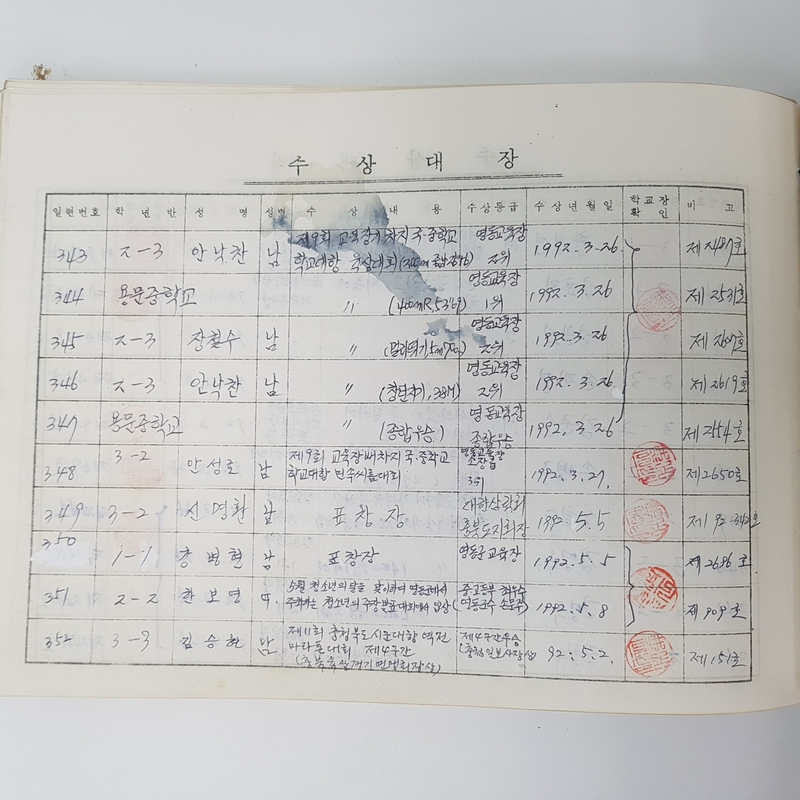 수 상 대 장
일련번호 학 년 반 성 명 성별 수 상 내 용 수상등급 수 상 년 월 일 학교장 확 인 비 고
343 2-3 안낙찬 남 제9회 교육장기차지 국·중학교 영동교육장 1992.3.26
학교대항 육상대회 2위 제2487호
344 용문중학교 〃 (400mR, 53"69) 영동교육장 1위 1992.3.26 제2531호
345 2-3 장철수 남 〃 영동교육장 2위 1992.3.26
346 2-3 안낙찬 남 〃 영동교육장 2위 1992.3.26 제2619호
347 용문중학교 〃 (종합우승) 영동교육장 종합우승 1992.3.26 제2554호
348 3-2 안성호 남 제9회 교육장배차지 국·중학교
학교대항 민속씨름대회 3위 1992.3.27. 제2650호
349 3-2 신명환 남 표창장 충북도지회장 1992.5.5
350 1-1 홍병현 남 표창장 영동군교육장 1992.5.5 제2686호
351 2-2 한보영 여 5월 청소년의 달을 맞이하여 영동군에서 중고등부 최우수
주최하는 청소년의 주장발표대회에서 입상 1992.5.8 제909호
352 3-3 김승현 남 제11회 충청북도 시군대항 역전 제4구간우승
마라톤대회 제4구간 (충청일보사장상) 92.5.2. 제151호